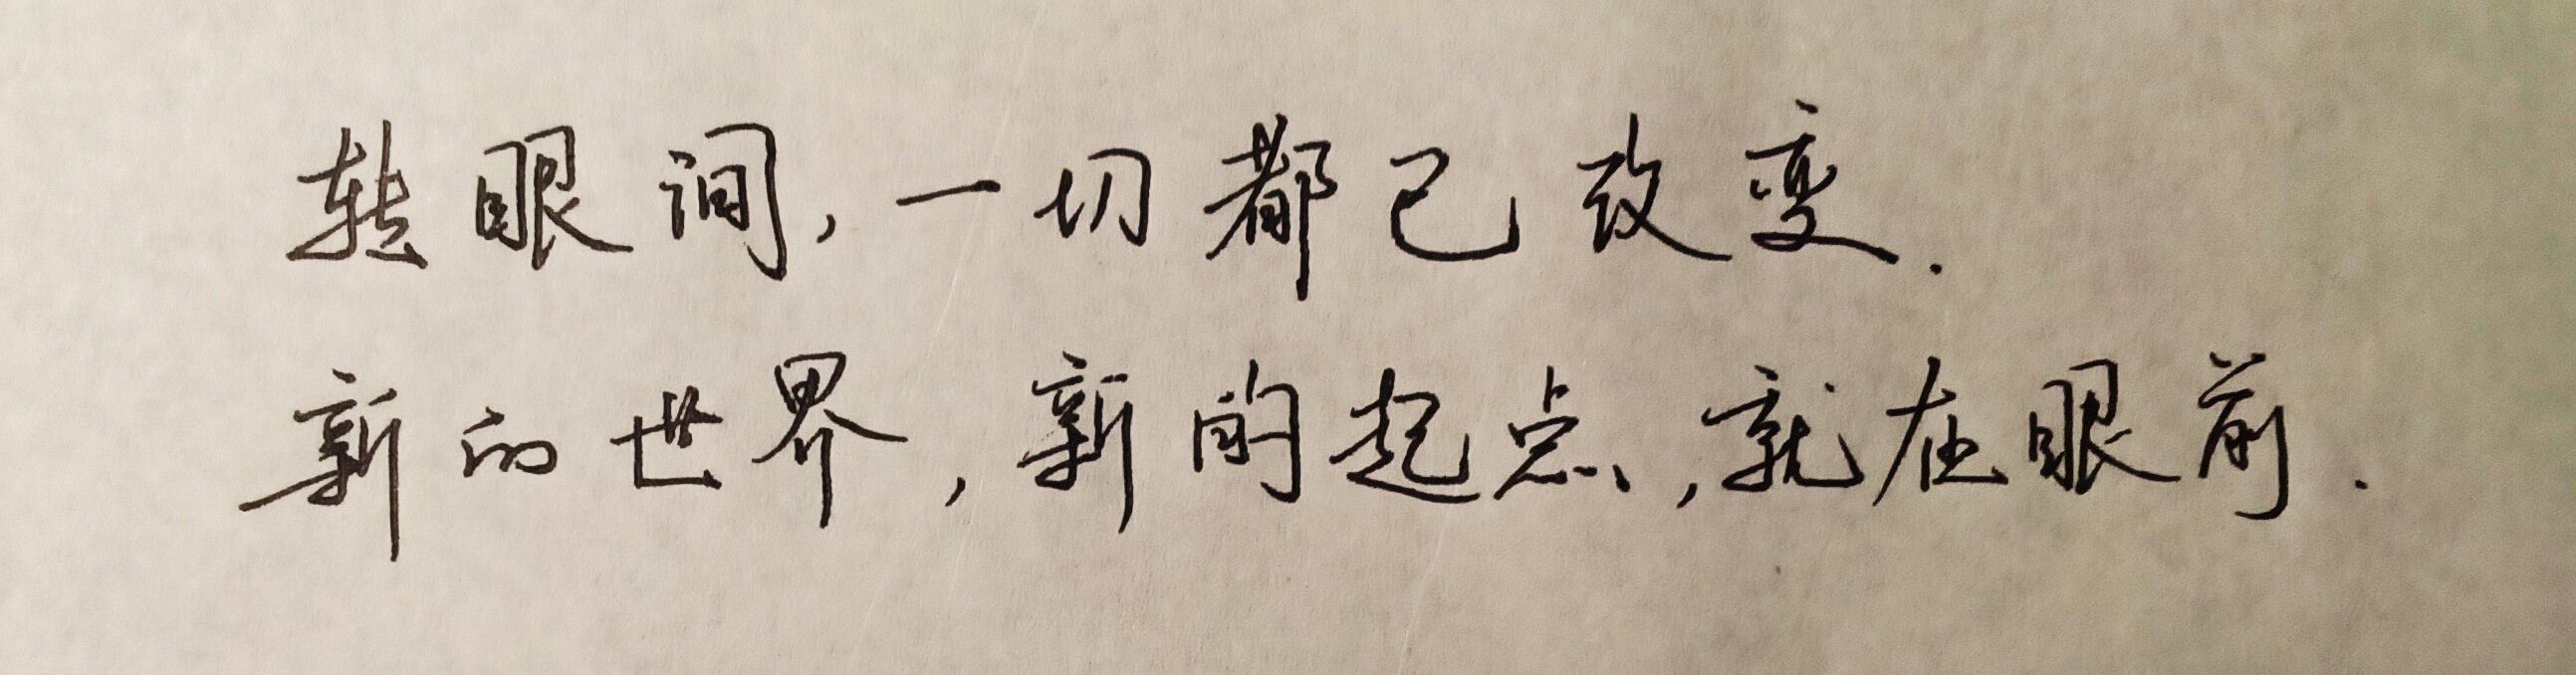 转眼间,一切都已改变.
新的世界,新的起点,就在眼前.